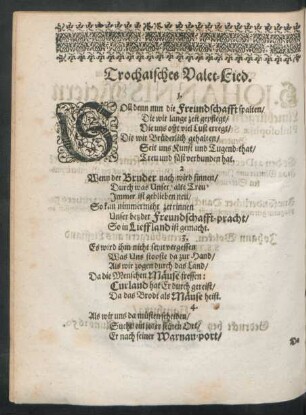 Trochaisches Valet-Lied.
1.
SOll denn nun die Freundschafft spalten/
Die wir lange zeit gepfleget/
Die uns offt viel Lust erregt/
Die wir Brüderlich gehalten/
Seit uns Kunst und Tugend-that/
Treu und süß verbunden hat.
2.
Wenn der Bruder nach wird sinnen/
Durch was Unser alte Treu
Immer ist geblieben neu/
So kan nimmermehr zerrinnen
Unser beyder Freundschafft-pracht/
So in Lieffland ist gemacht.
3.
Es wird ihm nicht seyn vergessen
Was Uns stoosse da zur Hand/
Als wir zogen durch das Land/
Da die Menschen Mäuse fressen:
Curland hat Er durch gereist/
Da das Brodt als Mäuse heist.
4.
Als wir uns da müsten scheiden/
Sucht ein jeder seinen Ort/
Er nach seiner Warnau-port/